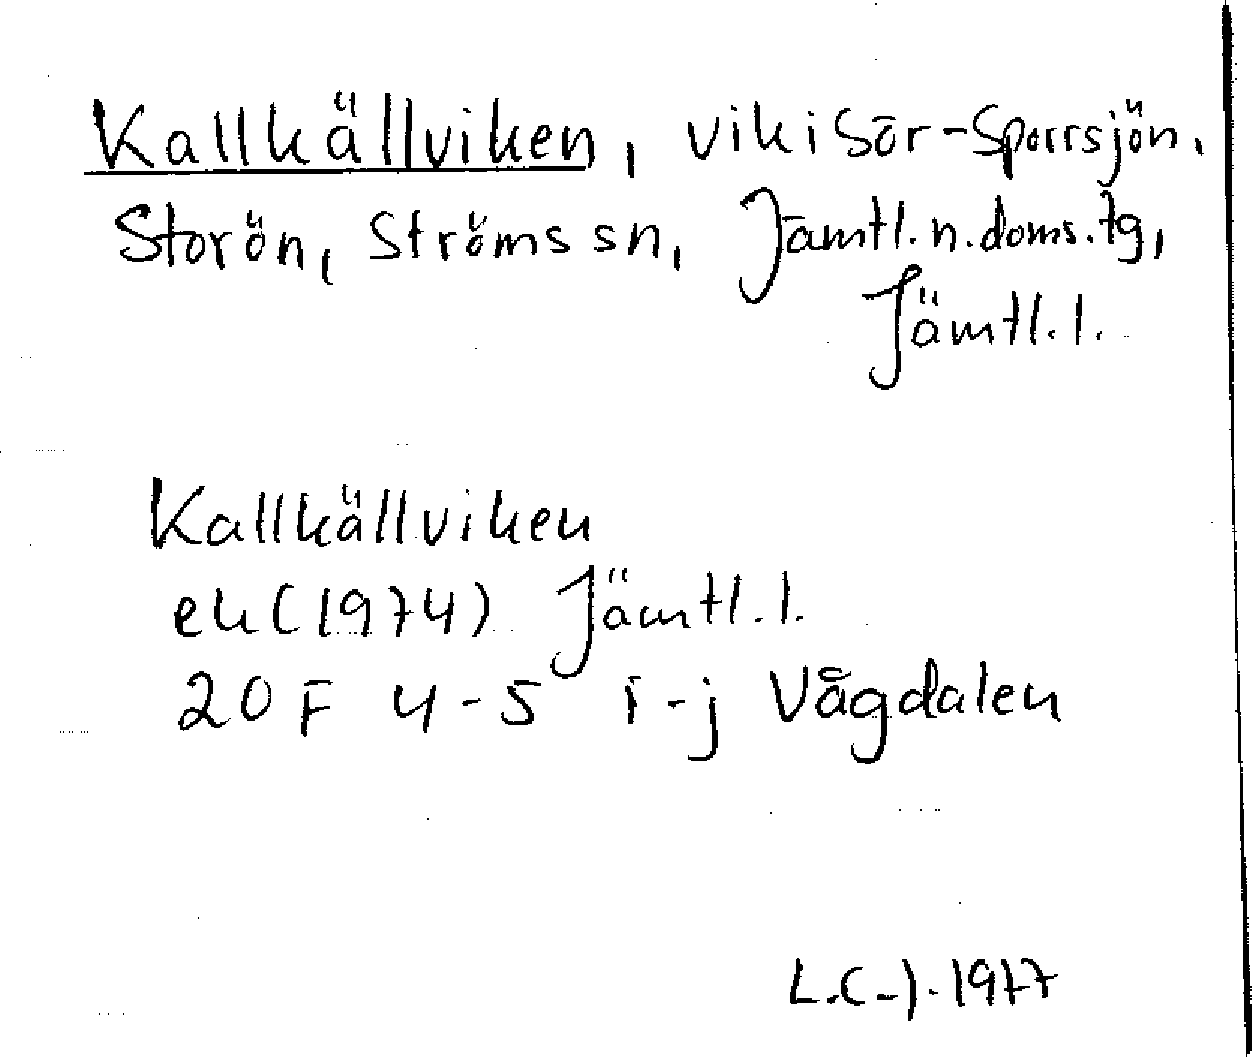 Kallkällviken, vik i Sör-Sporrsjön,
Storön, Ströms sn, Jämtl. n. doms. tg,
Jämtl. l.
Kallkällviken
ek (1974) Jämtl. l.
20 F 4-5 i-j Vågdalen
L.C-J. 1977